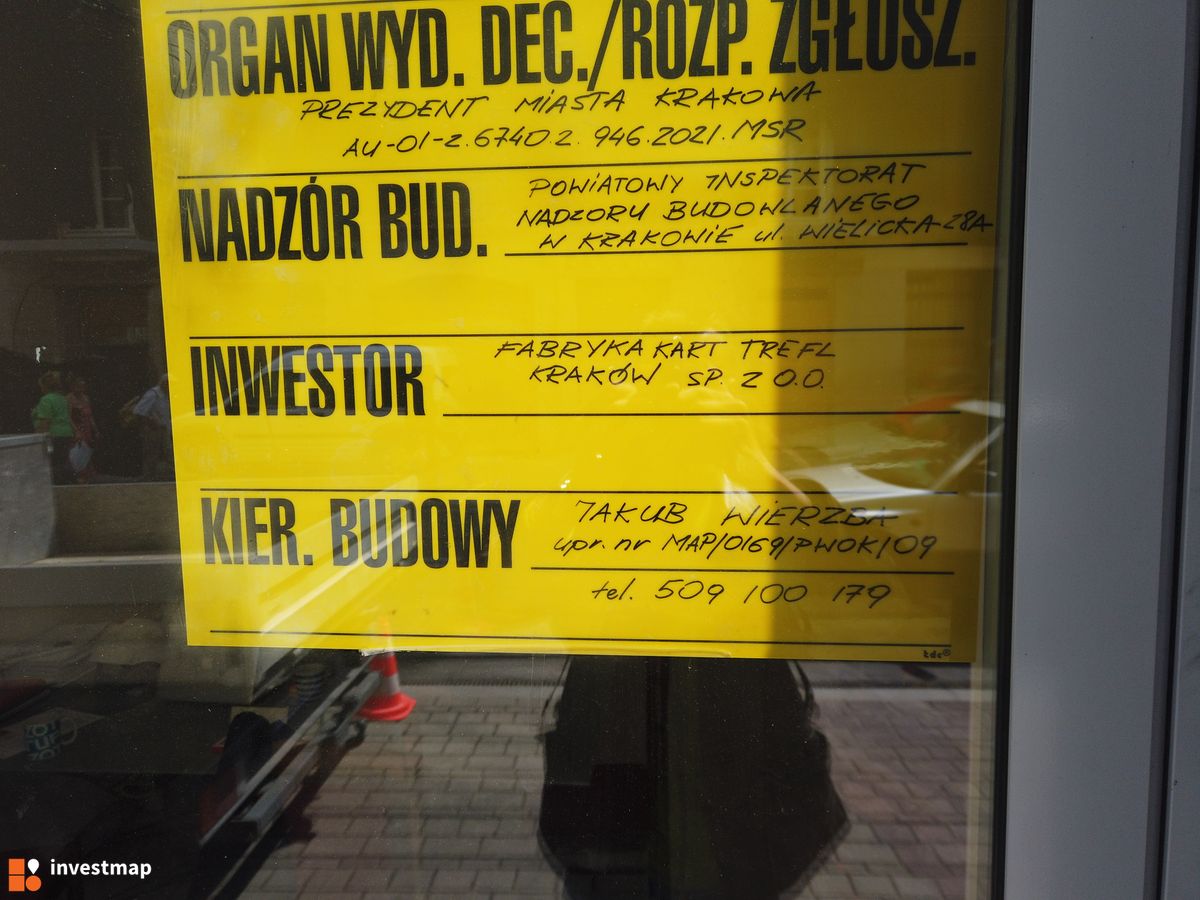 ORGAN WYD. DEC./ROZP. ZGŁOSZ.
PREZYDENT MIASTA KRAKOWA
AU-01-2.6740.2.946.2021.MSR
NADZÓR BUD.
POWIATOWY INSPEKTORAT
NADZORU BUDOWLANEGO
W KRAKOWIE ul. WIELICKA 28A
INWESTOR
FABRYKA KART TREFL
KRAKÓW SP. Z O.O.
KIER. BUDOWY
JAKUB WIERZBA
upr. nr MAP/0169/PWOK/09
tel. 509 100 179
tdc®
investmap